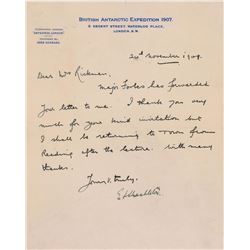 BRITISH ANTARCTIC EXPEDITION 1907.
9 REGENT STREET, WATERLOO PLACE,
LONDON, S.W.
24th November 1909.
Dear Mrs Rickman.
Major Forbes has forwarded
your letter to me. I thank you very
much for your kind invitation but
I shall be returning to Town from
Reading after the lecture. With many
thanks.
Yours v. truly.
EHShackleton